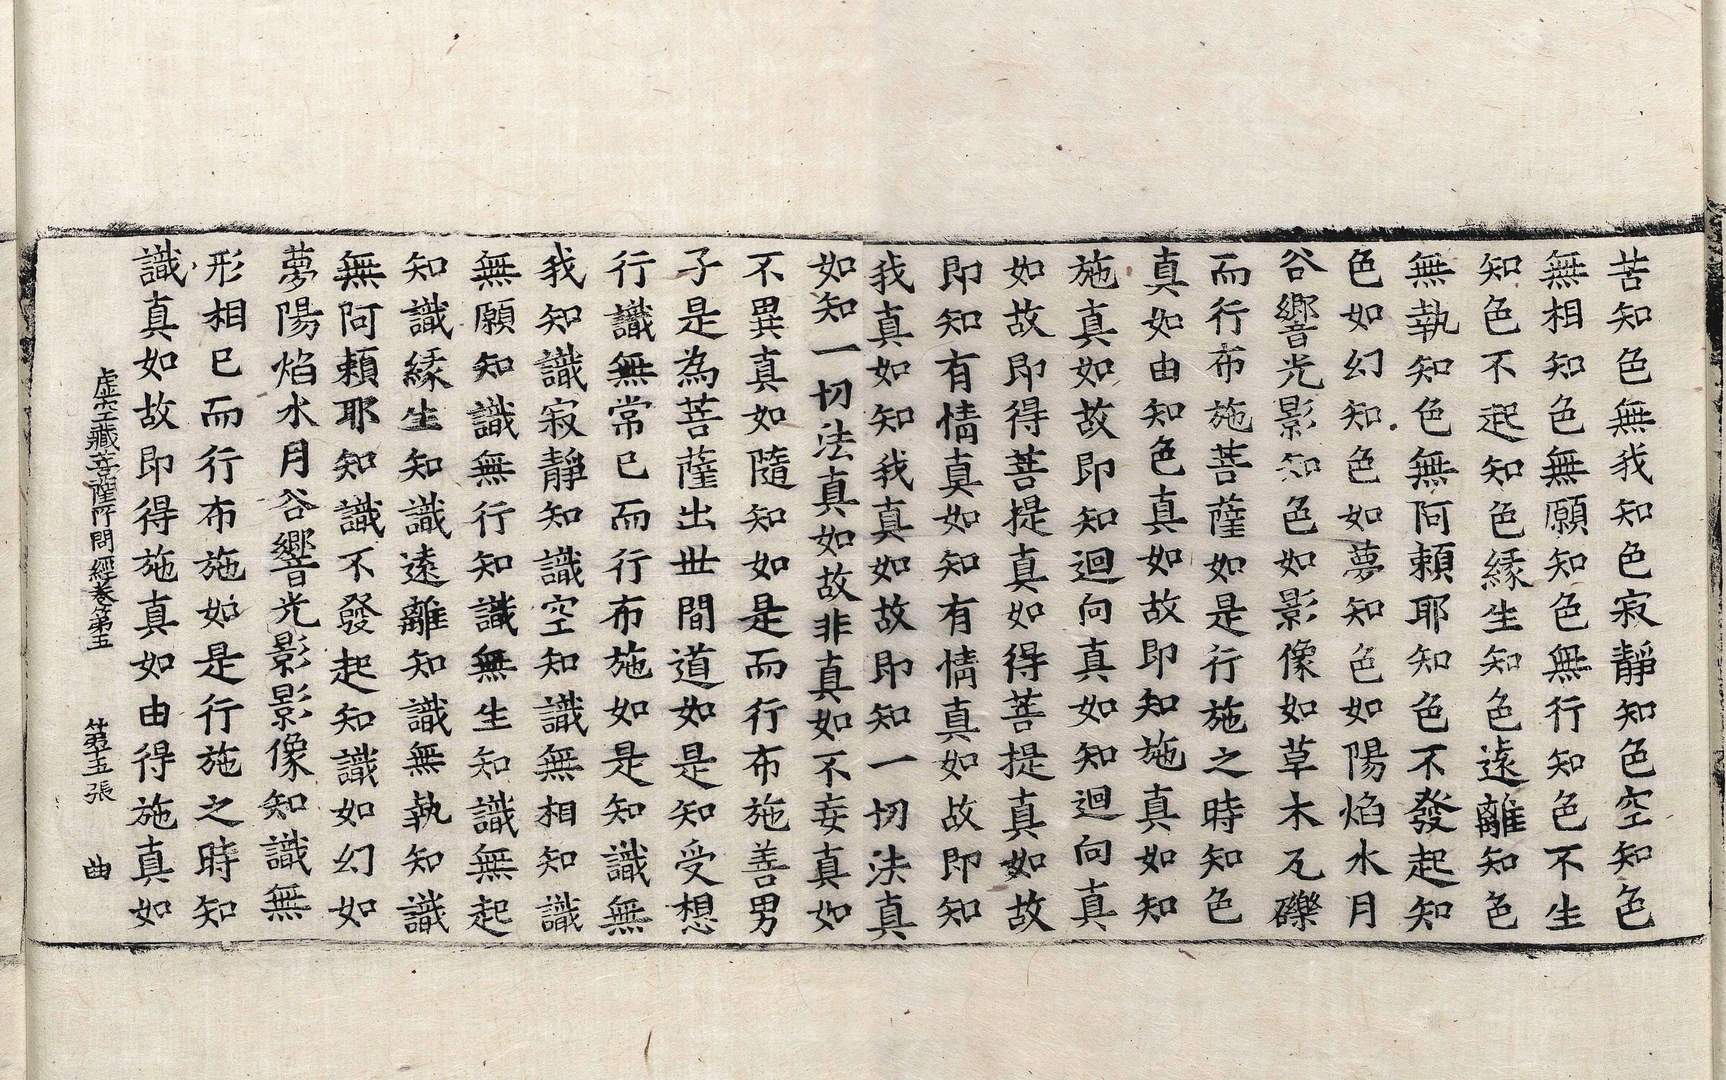 苦知色無我知色寂靜知色空知色
無相知色無願知色無行知色不生
知色不起知色緣生知色遠離知色
無執知色無阿賴耶知色不發起知
色如幻知色如夢知色如陽焰水月
谷響光影知色如影像如草木瓦礫
而行布施菩薩如是行施之時知色
真如由知色真如故即知施真如知
施真如故即知迴向真如知迴向真
如故即得菩提真如得菩提真如故
即知有情真如知有情真如故即知
我真如知我真如故即知一切法真
如知一切法真如故非真如不妄真如
不異真如隨知如是而行布施善男
子是為菩薩出世間道如是知受想
行識無常已而行布施如是知識無
我知識寂靜知識空知識無相知識
無願知識無行知識無生知識無起
知識緣生知識遠離知識無執知識
無阿賴耶知識不發起知識如幻如
夢陽焰水月谷響光影影像知識無
形相已而行布施如是行施之時知
識真如故即得施真如由得施真如
虛空藏菩薩所問經卷第五 第十五張 曲